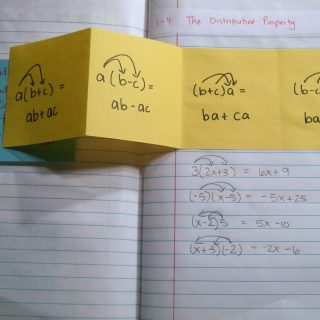 1-4 The Distributive Property
a(b+c) =
ab+ac
a(b-c) =
ab-ac
(b+c)a =
ba+ca
(b-c
ba
3(2x+3) = 6x+9
(-5)(x-5) = -5x+25
(x-2)5 = 5x-10
(x+3)(-2) = -2x-6